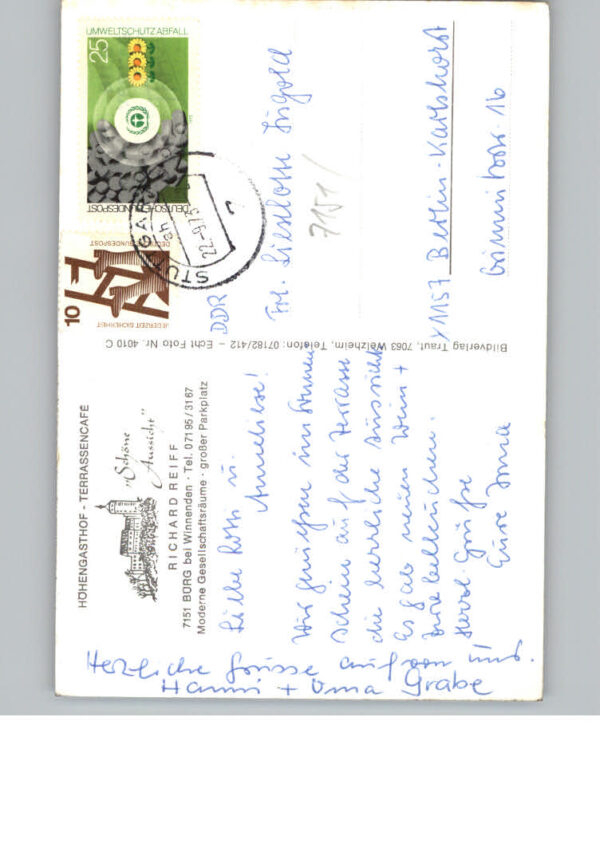 HÖHENGASTHOF - TERRASSENCAFÉ
"Schöne
Aussicht"
RICHARD REIFF
7151 BÜRG bei Winnenden · Tel. 07195/3167
Moderne Gesellschaftsräume · großer Parkplatz
Liebe Lotti u.
Anneliese!
Wir genießen im Sonnen
schein auf der Terrasse
die herrliche Aussicht
Es gab neuen Wein +
Herzl. Grüße
Eure
Herzliche Grüsse auch von uns.
Hanni + Oma Grabe
Bildverlag Traut, 7063 Welzheim, Telefon: 07182/412 – Echt Foto Nr. 4610 C
UMWELTSCHUTZ: ABFALL
25
DEUTSCHE BUNDESPOST
10
JEDERZEIT SICHERHEIT
DEUTSCHE BUNDESPOST
STUTTGART
22.-9.73
DDR
Frl. Lieselotte
7151/
X1157 Berlin-Karlshorst
16